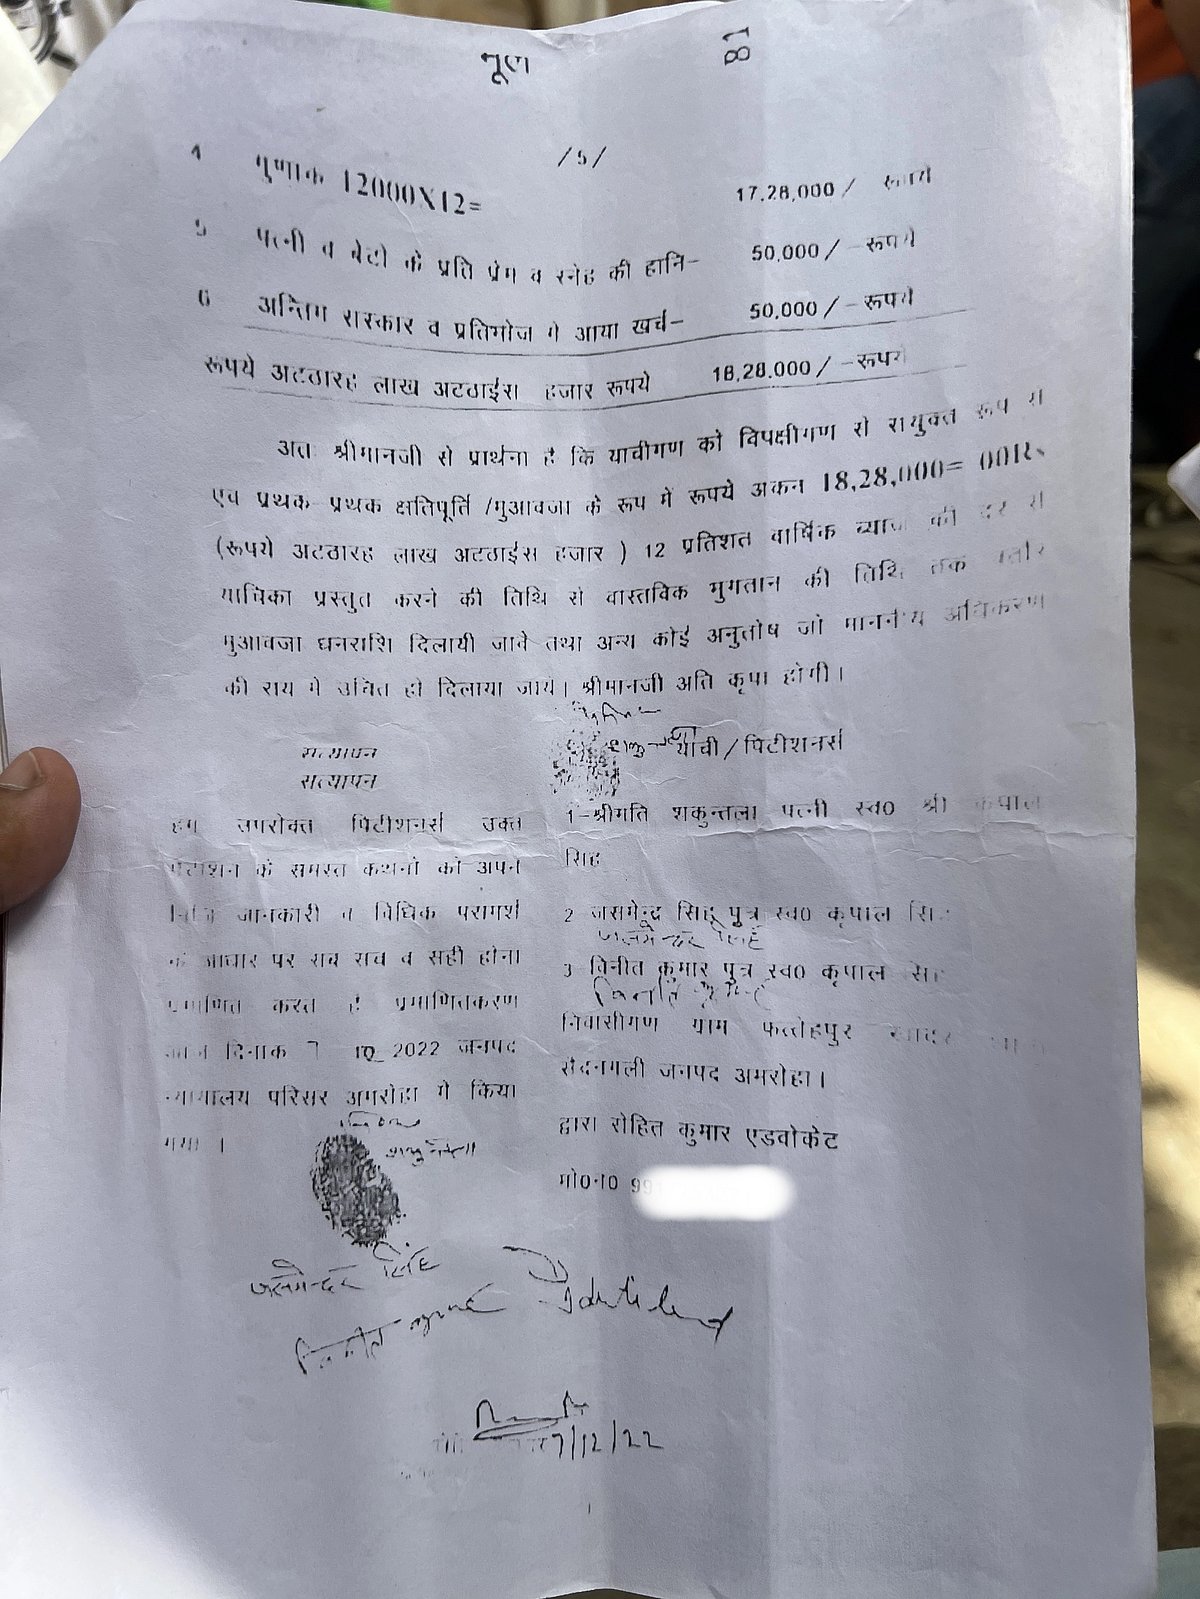 81
/5/
4 गुणाक 12000X12= 17,28,000/ रूपये
5 पत्नी व बेटो के प्रति प्रेम व स्नेह की हानि- 50,000/-रूपये
6 अन्तिम संस्कार व प्रतिभोज मे आया खर्च- 50,000/-रूपये
रूपये अटठारह लाख अटठाईस हजार रूपये 18,28,000/-रूपये
अतः श्रीमानजी से प्रार्थना है कि याचीगण को विपक्षीगण से संयुक्त रूप से
एव प्रथक प्रथक क्षतिपूर्ति/मुआवजा के रूप में रूपये अकन 18,28,000=00Rs
(रूपये अटठारह लाख अटठाईस हजार) 12 प्रतिशत वार्षिक ब्याज की दर से
याचिका प्रस्तुत करने की तिथि से वास्तविक भुगतान की तिथि तक बतौर
मुआवजा धनराशि दिलायी जावे तथा अन्य कोई अनुतोष जो माननीय अधिकरण
की राय मे उचित हो दिलाया जाये। श्रीमानजी अति कृपा होगी।
याची/पिटीशनर्स
सत्यापन
सत्यापन
हम उपरोक्त पिटीशनर्स उक्त
पिटीशन के समस्त कथनो को अपने
निजि जानकारी व विधिक परामर्श
के आधार पर सब सच व सही होना
प्रमाणित करते है प्रमाणितकरण
आज दिनाक 7 10 2022 जनपद
न्यायालय परिसर अमरोहा मे किया
गया।
शकुन्तला
1-श्रीमति शकुन्तला पत्नी स्व0 श्री कृपाल
सिंह
2 जसमेन्द्र सिंह पुत्र स्व0 कृपाल सिंह
जसमेन्दर सिंह
3 विनीत कुमार पुत्र स्व0 कृपाल सिंह
विनीत कुमार
निवासीगण ग्राम फत्तेहपुर खादर
सैदनगली जनपद अमरोहा।
द्वारा रोहित कुमार एडवोकेट
मो0न0 99
जसमेन्दर सिंह
विनीत कुमार
7/12/22